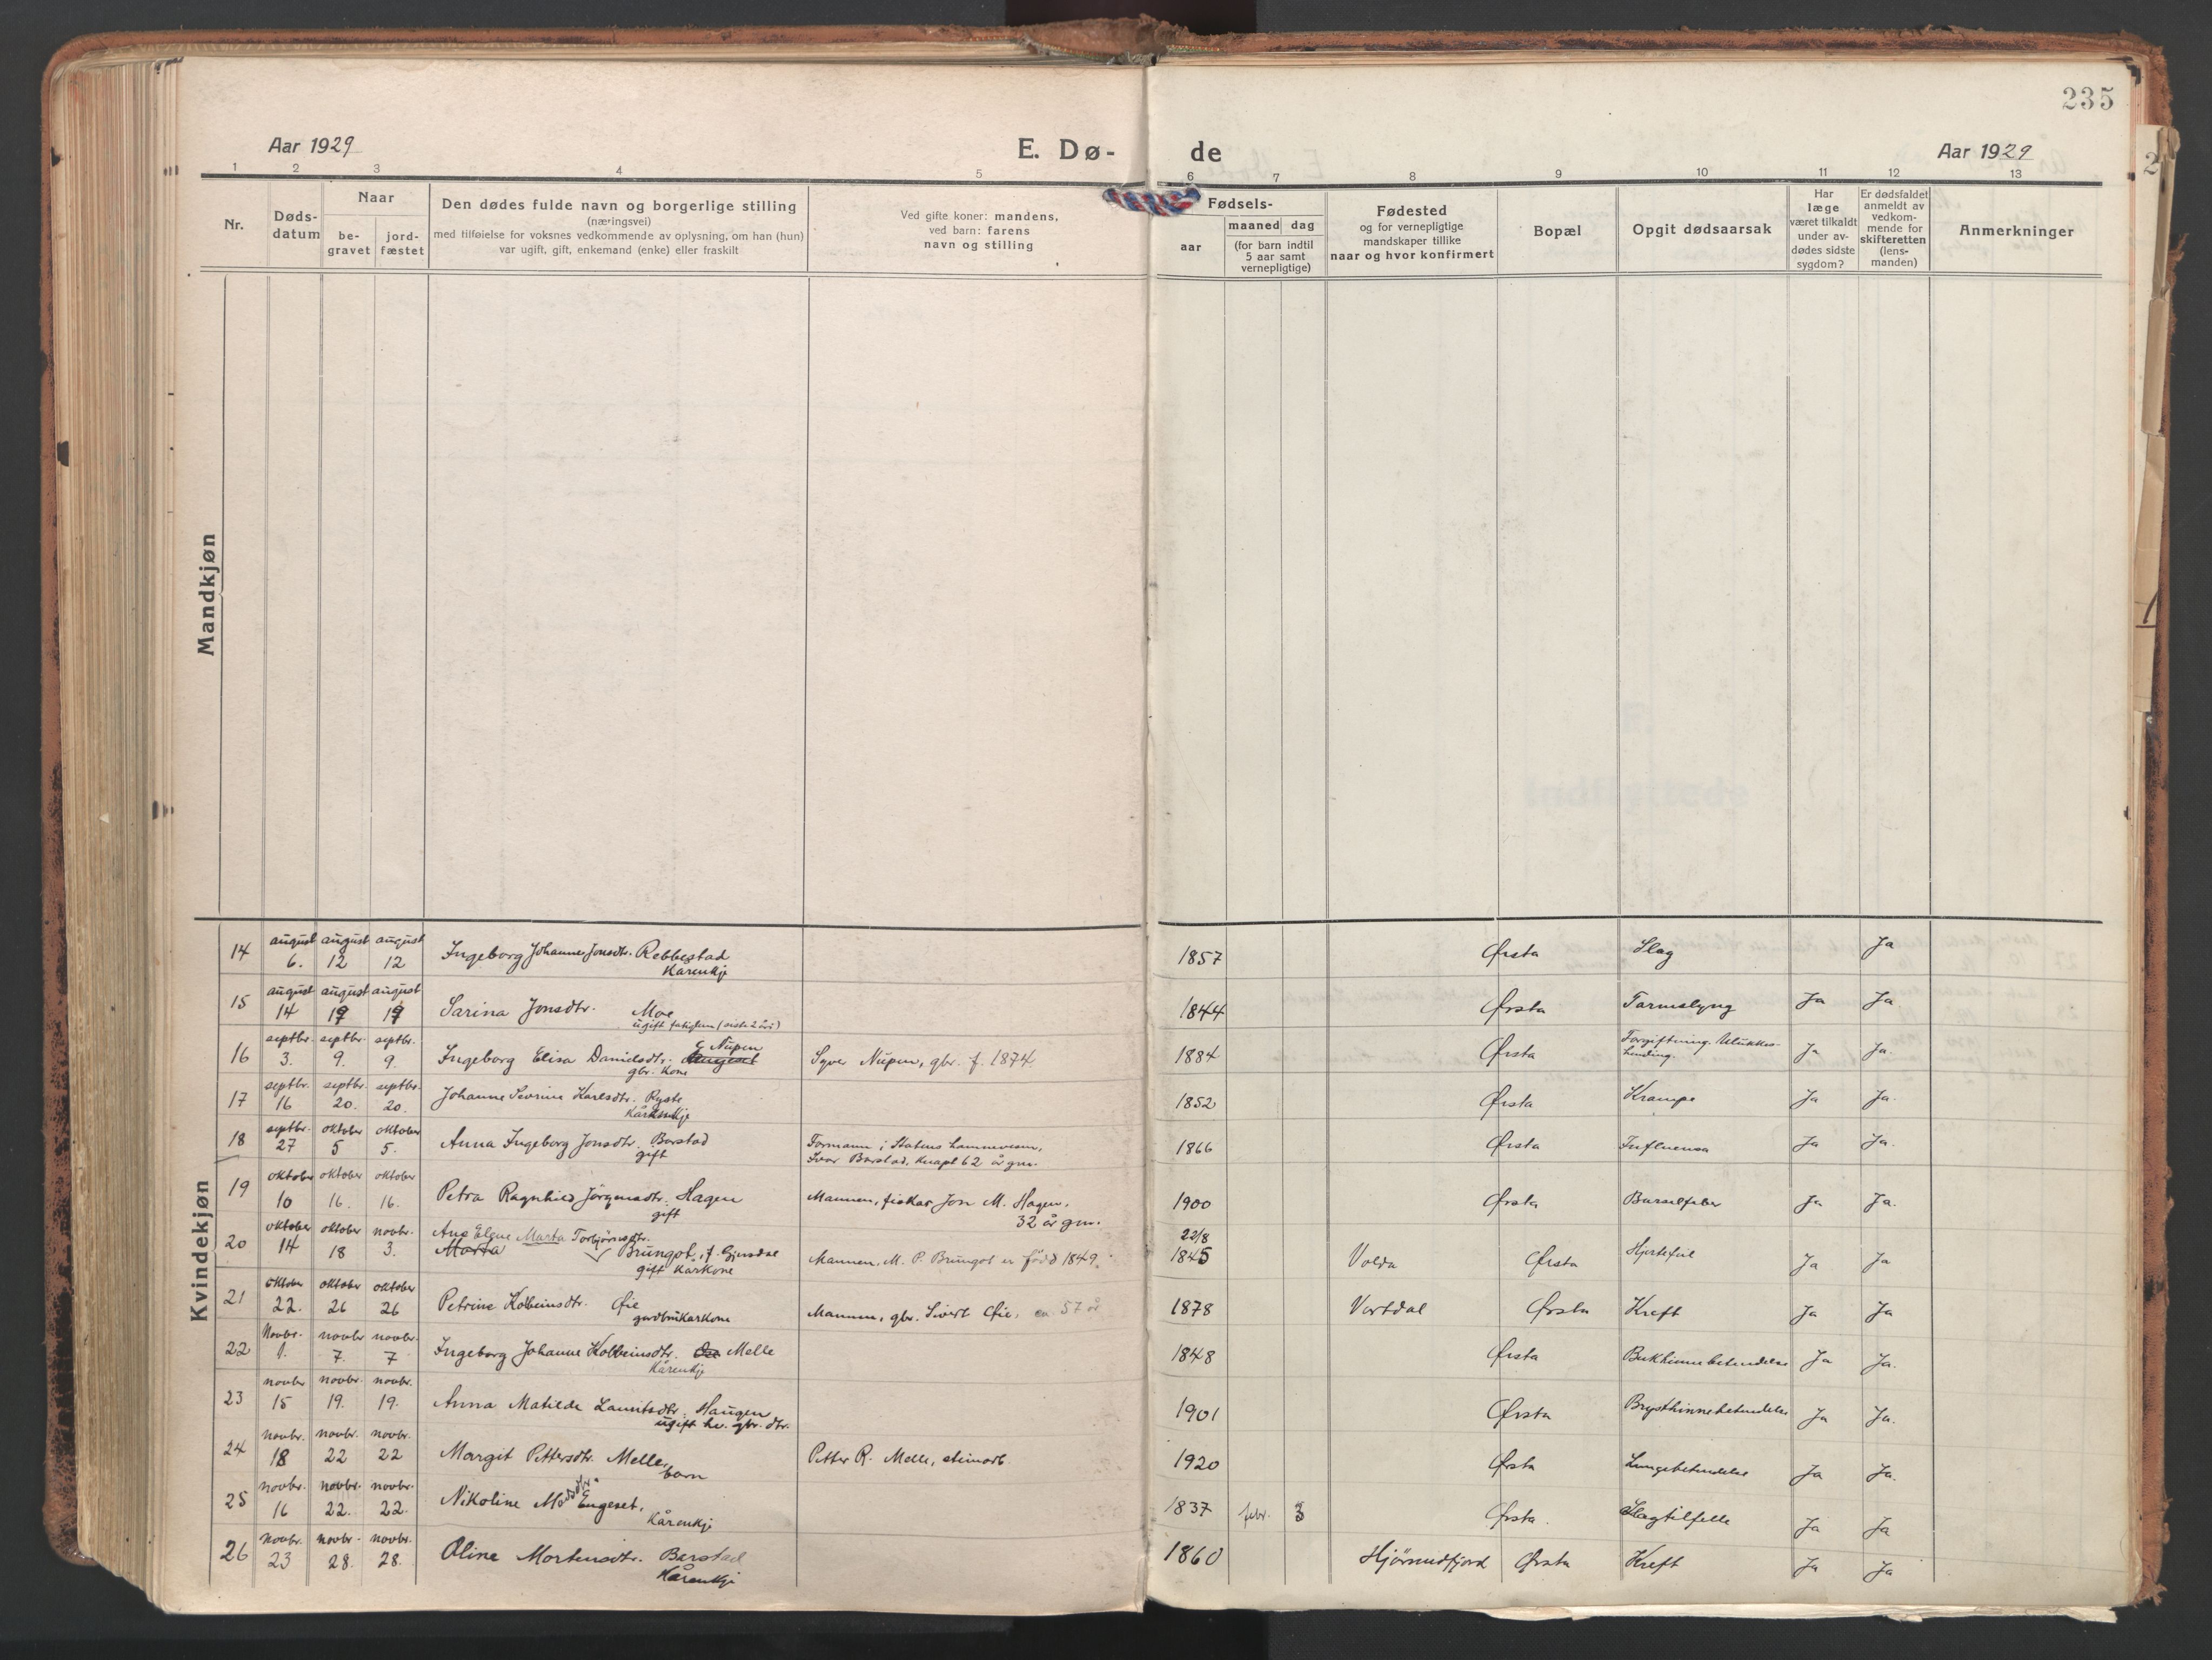 235
Aar 1929
E. Dø-
de
Aar 1929
1 2 3 4 5 6 7 8 9 10 11 12 13
Nr.
Døds-
datum
Naar
be-
gravet
jord-
fæstet
Den dødes fulde navn og borgerlige stilling
(næringsvei)
med tilføielse for voksnes vedkommende av oplysning, om han (hun)
var ugift, gift, enkemand (enke) eller fraskilt
Ved gifte koner: mandens,
ved barn: farens
navn og stilling
Fødsels-
aar
maaned dag
(for barn indtil
5 aar samt
vernepligtige)
Fødested
og for vernepligtige
mandskaper tillike
naar og hvor konfirmert
Bopæl
Opgit dødsaarsak
Har
læge
været tilkaldt
under av-
dødes sidste
sygdom?
Er dødsfaldet
anmeldt av
vedkom-
mende for
skifteretten
(lens-
manden)
Anmerkninger
Mandkjøn
Kvindekjøn
august august august
14 6. 12 12 Ingeborg Johanne Jonsdtr. Rebbestad 1857 Ørsta Slag Ja
Kårenkje
august august august
15 14 19 19 Sarina Jonsdtr. Moe 1844 Ørsta Tarmslyng Ja Ja
ugift fatiglem (siste 2 år)
septbr. septbr. septbr.
16 3. 9. 9. Ingeborg Elisa Danielsdtr. Nupen Syver Nupen, gbr. f. 1874. 1884 Ørsta Forgiftning. Ulukkes-
hending. Ja Ja.
gbr. kone
septbr. septbr. septbr.
17 16 20. 20. Johanne Sevrine Karlsdtr. Ryste 1852 Ørsta Krampe Ja Ja.
Kårenkje
septbr. oktober oktober
18 27 5 5. Anna Ingeborg Jonsdtr. Barstad Formann i Statens hamnevesen, 1866 Ørsta Influensa Ja Ja.
gift Ivar Barstad, knapt 62 år gm.
oktober oktober oktober
19 10 16. 16. Petra Ragnhild Jörgensdtr. Hagen Mannen, fiskar Jon M. Hagen, 1900 Ørsta Barselfeber Ja Ja.
gift 32 år gm.
oktober oktober novbr.
20 14 18 3. Ane Elgne Marta Torbjörnsdtr. 22/8
Marta Brungot, f. Gjersdal Mannen, M. P. Brungot er född 1849. 1845 Volda Ørsta Hjertefeil Ja Ja
gift kårkone
oktober oktober oktober
21 22. 26 26 Petrine Kolbeinsdtr. Øie Mannen, gbr. Sivert Øie, ca 57 år 1878 Vartdal Ørsta Kreft Ja Ja
gardbrukarkone
Novbr. novbr novbr.
22 1. 7. 7 Ingeborg Johanne Kolbeinsdtr. Melle 1848 Ørsta Bukhinnebetendelse Ja Ja.
Kårenkje
novbr novbr. novbr.
23 15 19. 19. Anna Matilde Lauritsdtr. Haugen 1901 Ørsta Brysthinnebetendelse Ja Ja.
ugift hv. gbr. dtr.
novbr. novbr. novbr.
24 18 22 22 Margit Pettersdtr. Melle, Petter R. Melle, steinarb. 1920 Ørsta Lungebetendelse Ja Ja.
barn
novbr. novbr. novbr.
25 16 22. 22. Nikoline Madsdtr. Engeset, 1837 febr. 3 Ørsta. Slagtilfelle Ja Ja
Kårenkje
novbr. novbr. novbr.
26 23 28. 28. Oline Mortensdtr. Barstad 1860 Hjörundfjord Ørsta Kreft Ja Ja
Kårenkje